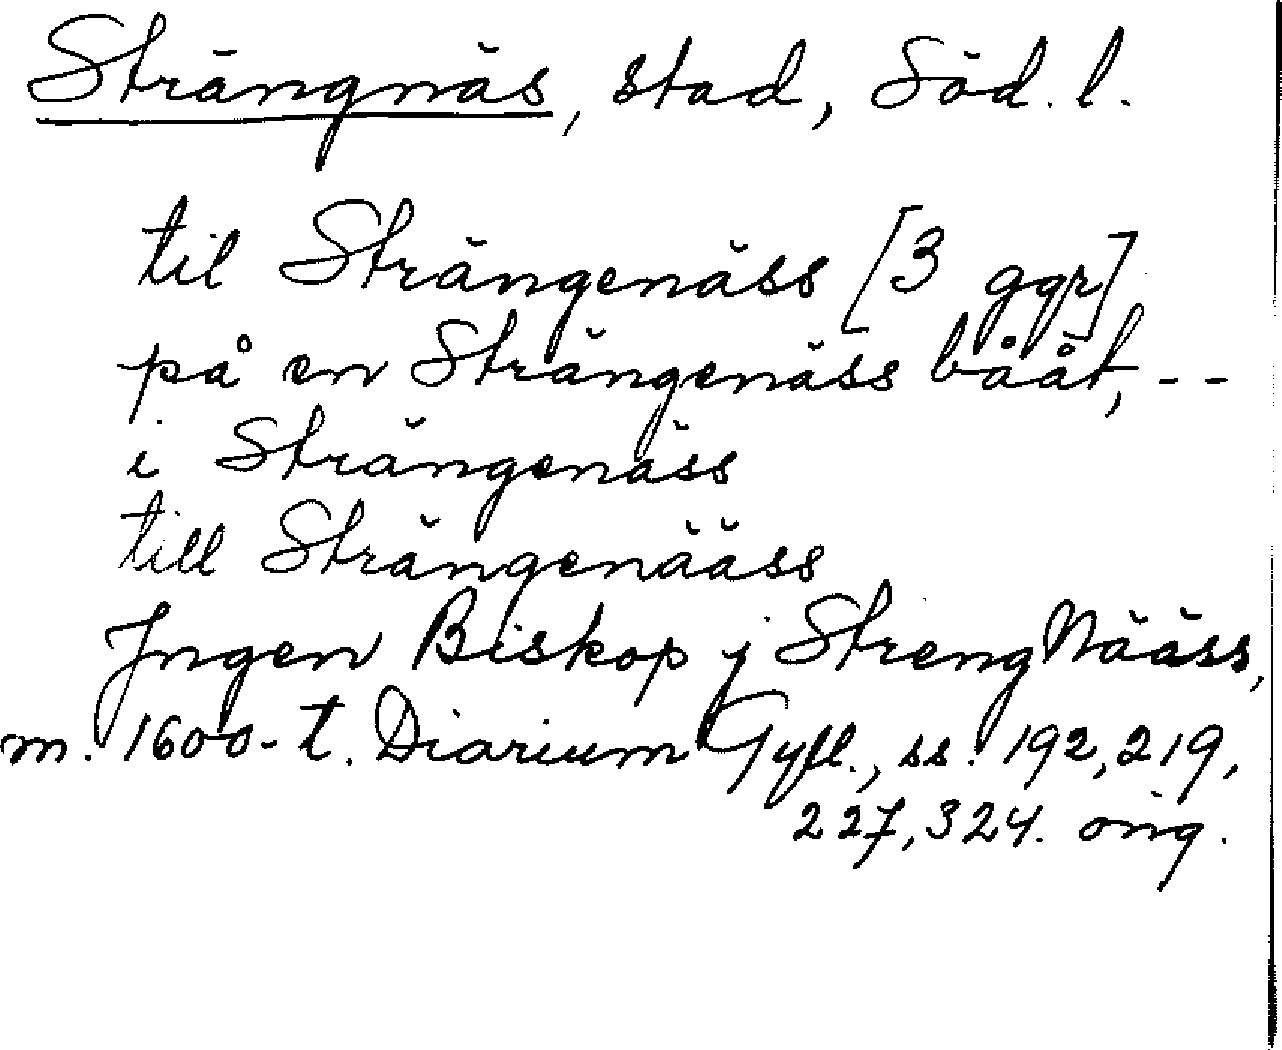 Strängnäs, stad, Söd. l.
til Strängenäss [3 ggr]
på en Strängenäss bååt, --
i Strängenäss
till Strängenääss
Jngen Biskop j Streng Nääss,
m. 1600-t. Diarium Gyll., ss. 192, 219,
227, 324. orig.